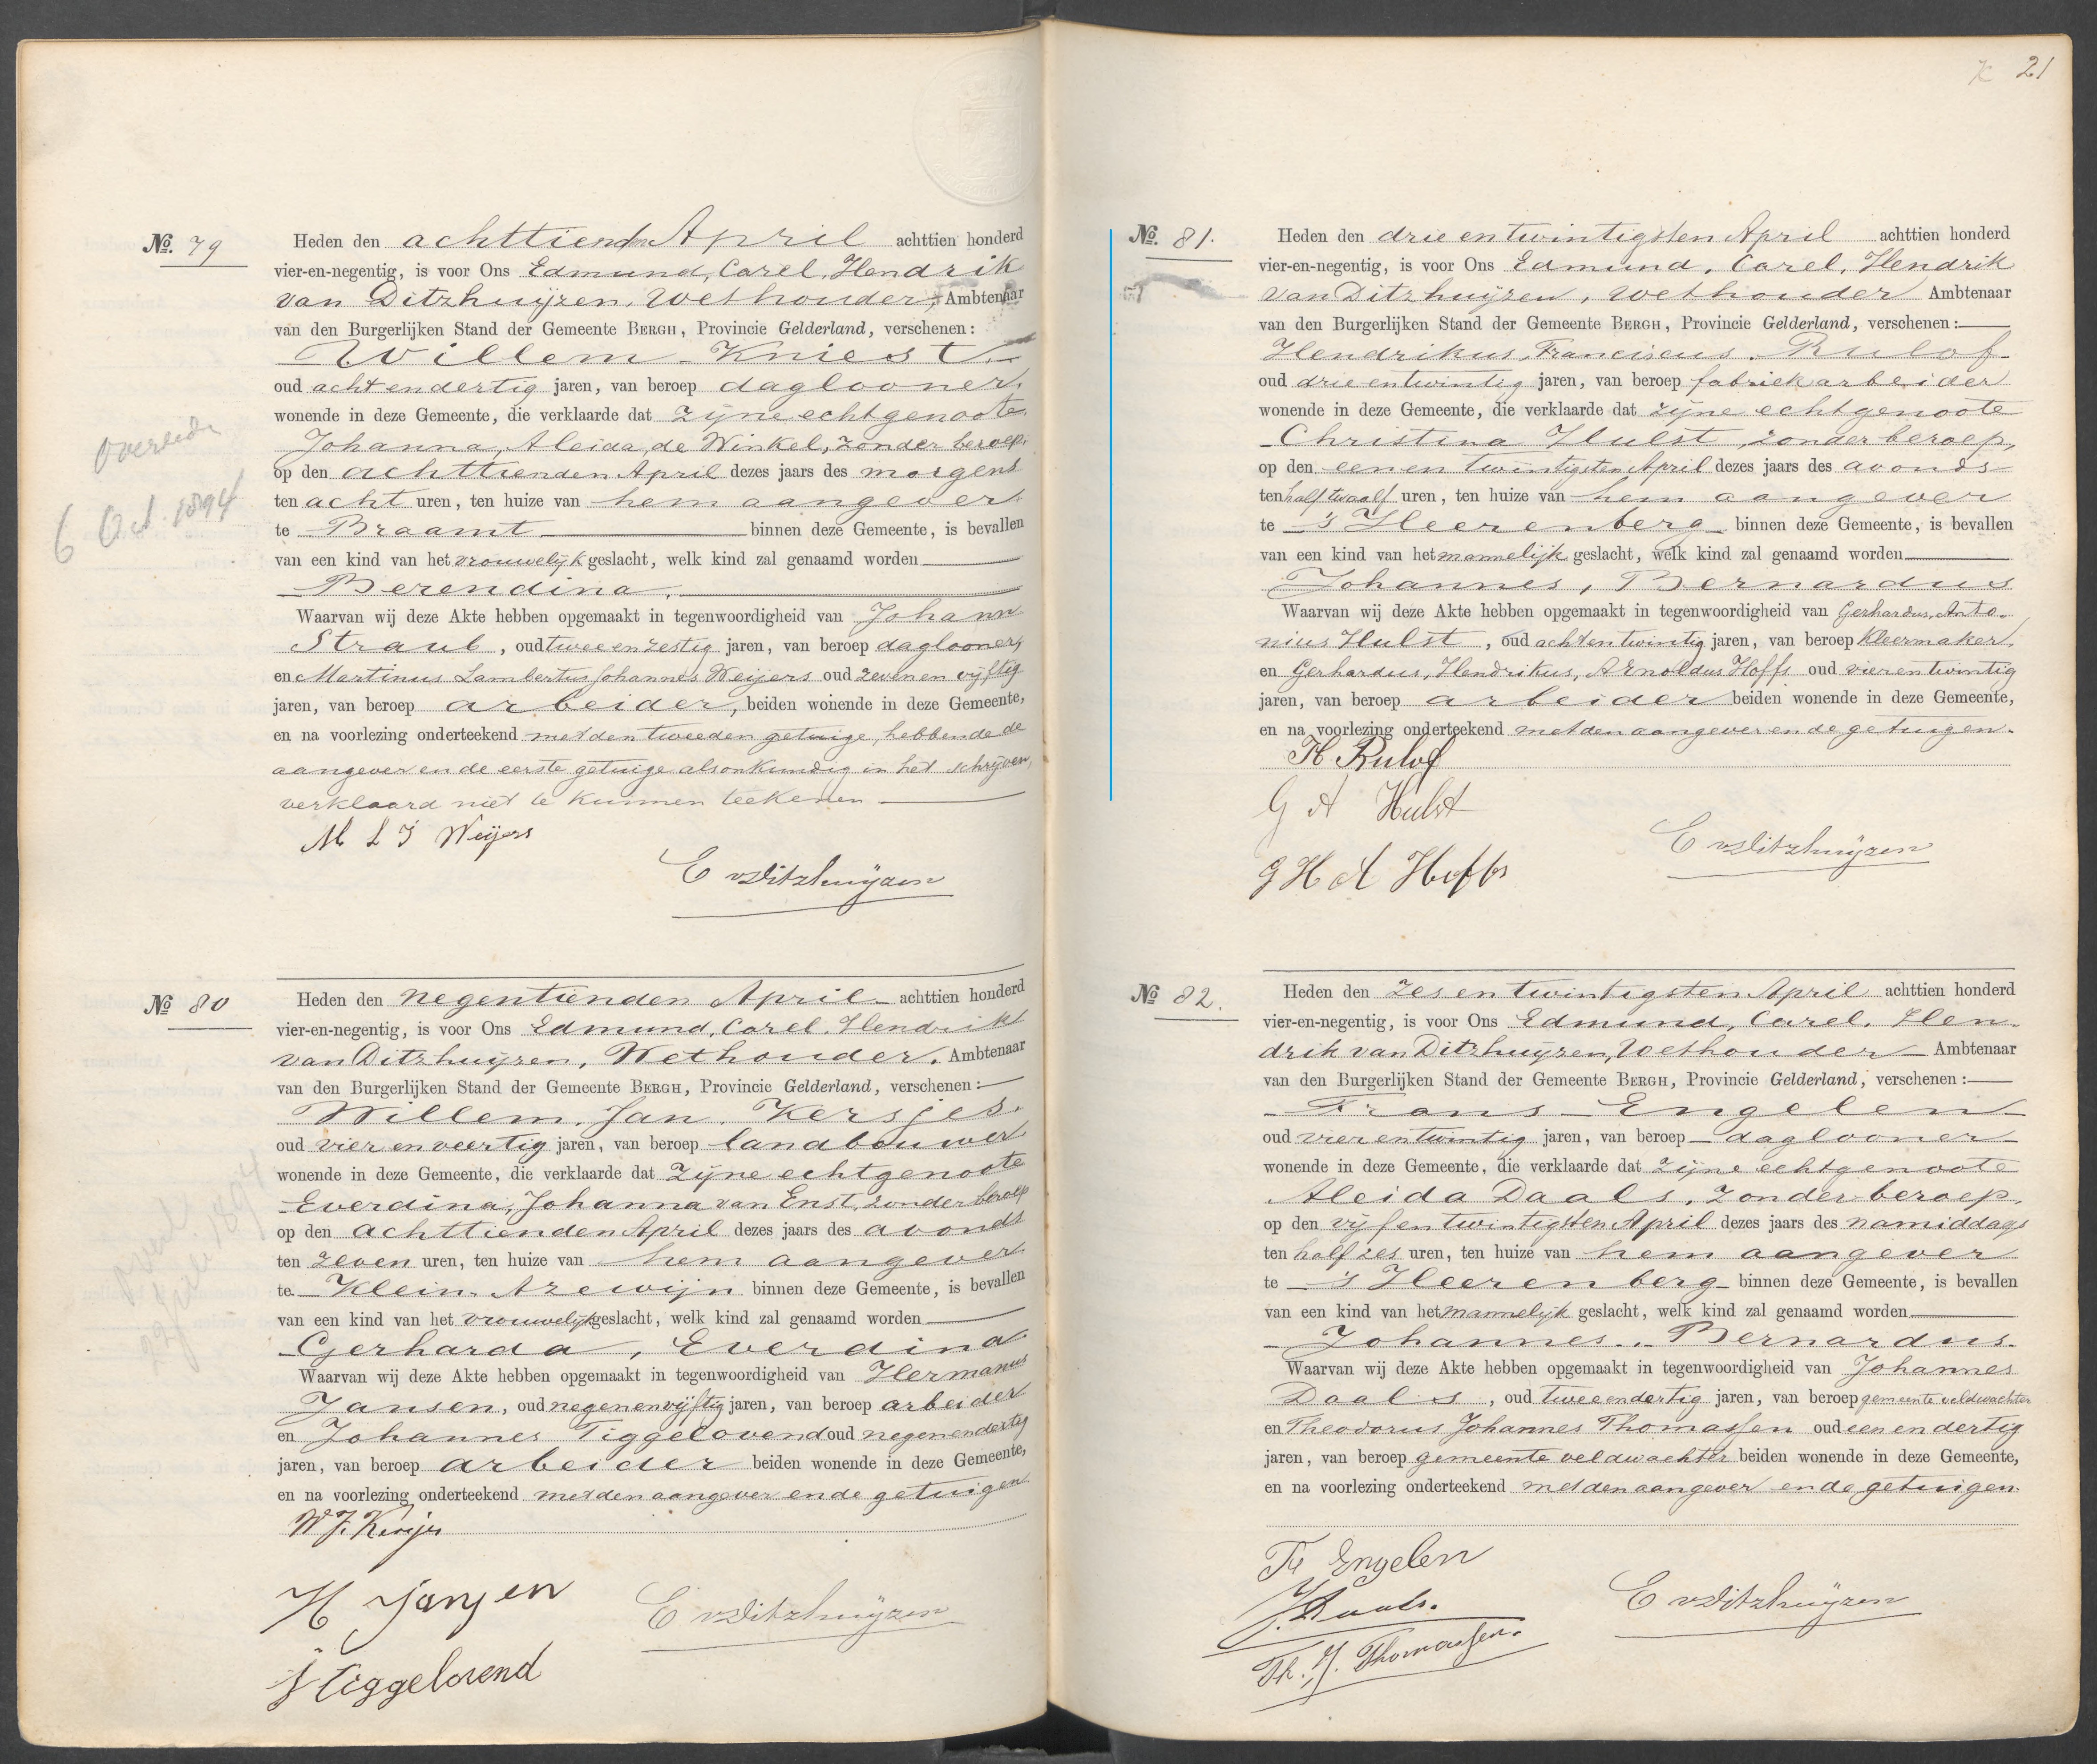 No. 79
Heden den achttienden April achttien honderd
vier-en-negentig, is voor Ons Edmund, Carel, Hendrik
van Ditzhuijzen, Wethouder, Ambtenaar
van den Burgerlijken Stand der Gemeente BERGH, Provincie Gelderland, verschenen:
Willem Kniest.
oud acht en dertig jaren, van beroep daglooner,
wonende in deze Gemeente, die verklaarde dat zijne echtgenoote
Johanna, Aleida, de Winkel, zonder beroep,
op den achttienden April dezes jaars des morgens
ten acht uren, ten huize van hem aangever
te Braamt binnen deze Gemeente, is bevallen
van een kind van het vrouwelijk geslacht, welk kind zal genaamd worden
Berendina.
Waarvan wij deze Akte hebben opgemaakt in tegenwoordigheid van Johann
Straub, oud twee en zestig jaren, van beroep daglooner,
en Martinus Lambertus Johannes Weijers oud zeven en vijftig
jaren, van beroep arbeider, beiden wonende in deze Gemeente,
en na voorlezing onderteekend met den tweeden getuige, hebbende de
aangever en de eerste getuige als onkundig in het schrijven,
verklaard niet te kunnen teekenen
M L J Weijers
E v Ditzhuijzen
6 Oct. 1894
No 80
Heden den negentienden April achttien honderd
vier-en-negentig, is voor Ons Edmund, Carel, Hendrik
van Ditzhuijzen, Wethouder, Ambtenaar
van den Burgerlijken Stand der Gemeente BERGH, Provincie Gelderland, verschenen:
Willem, Jan, Kersjes.
oud vier en veertig jaren, van beroep landbouwer
wonende in deze Gemeente, die verklaarde dat zijne echtgenoote
Everdina, Johanna van Enst, zonder beroep
op den achttienden April dezes jaars des avonds
ten zeven uren, ten huize van hem aangever
te Klein-Azewijn binnen deze Gemeente, is bevallen
van een kind van het vrouwelijk geslacht, welk kind zal genaamd worden
Gerharda, Everdina
Waarvan wij deze Akte hebben opgemaakt in tegenwoordigheid van Hermanus
Jansen, oud negen en vijftig jaren, van beroep arbeider
en Johannes Tiggelovend oud negen en dertig
jaren, van beroep arbeider beiden wonende in deze Gemeente,
en na voorlezing onderteekend met den aangever en de getuigen
W J. Kersjes
H Jansen
J Tiggelovend
E v Ditzhuijzen
21
No. 81.
Heden den drie en twintigsten April achttien honderd
vier-en-negentig, is voor Ons Edmund, Carel, Hendrik
van Ditzhuijzen, Wethouder Ambtenaar
van den Burgerlijken Stand der Gemeente BERGH, Provincie Gelderland, verschenen:
Hendrikus, Franciscus, Rulof
oud drie en twintig jaren, van beroep fabriekarbeider
wonende in deze Gemeente, die verklaarde dat zijne echtgenoote
Christina Hulst, zonder beroep,
op den een en twintigsten April dezes jaars des avonds
ten half twaalf uren, ten huize van hem aangever
te 's Heerenberg binnen deze Gemeente, is bevallen
van een kind van het mannelijk geslacht, welk kind zal genaamd worden
Johannes, Bernardus
Waarvan wij deze Akte hebben opgemaakt in tegenwoordigheid van Gerhardus, Anto-
nius Hulst, oud acht en twintig jaren, van beroep kleermaker,
en Gerhardus, Hendrikus, Arnoldus Hoffs oud vier en twintig
jaren, van beroep arbeider beiden wonende in deze Gemeente,
en na voorlezing onderteekend met den aangever en de getuigen.
H Rulof
G A Hulst
G H A Hoffs
E v Ditzhuijzen
No 82.
Heden den zes en twintigsten April achttien honderd
vier-en-negentig, is voor Ons Edmund, Carel, Hen-
drik van Ditzhuijzen, Wethouder Ambtenaar
van den Burgerlijken Stand der Gemeente BERGH, Provincie Gelderland, verschenen:
Frans Engelen
oud vier en twintig jaren, van beroep daglooner
wonende in deze Gemeente, die verklaarde dat zijne echtgenoote
Aleida Daals, zonder beroep,
op den vijf en twintigsten April dezes jaars des namiddags
ten half zes uren, ten huize van hem aangever
te 's Heerenberg binnen deze Gemeente, is bevallen
van een kind van het mannelijk geslacht, welk kind zal genaamd worden
Johannes, Bernardus.
Waarvan wij deze Akte hebben opgemaakt in tegenwoordigheid van Johannes
Daals, oud twee en dertig jaren, van beroep gemeente veldwachter
en Theodorus Johannes Thomassen oud een en dertig
jaren, van beroep gemeente veldwachter beiden wonende in deze Gemeente,
en na voorlezing onderteekend met den aangever en de getuigen.
Fr Engelen
J. Daals.
Th. J. Thomassen.
E v Ditzhuijzen